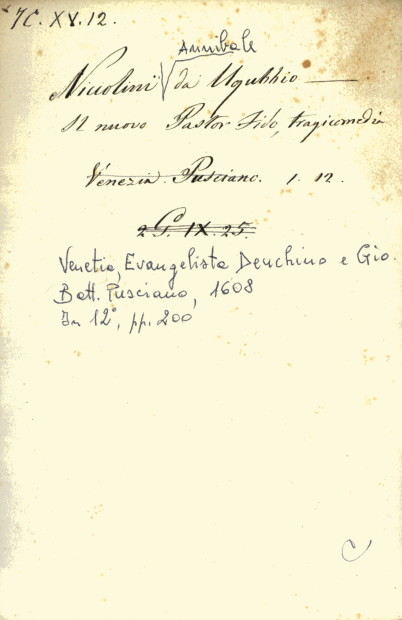 7C. XV. 12.
Annibale
Niccolini da Ugubbio —
Il nuovo Pastor Fido, tragicomedia
Venezia. Pusciano. 1. 12.
2 G. IX. 25.
Venetia, Evangelista Deuchino e Gio.
Batt. Pusciano, 1608
In 12°, pp. 200